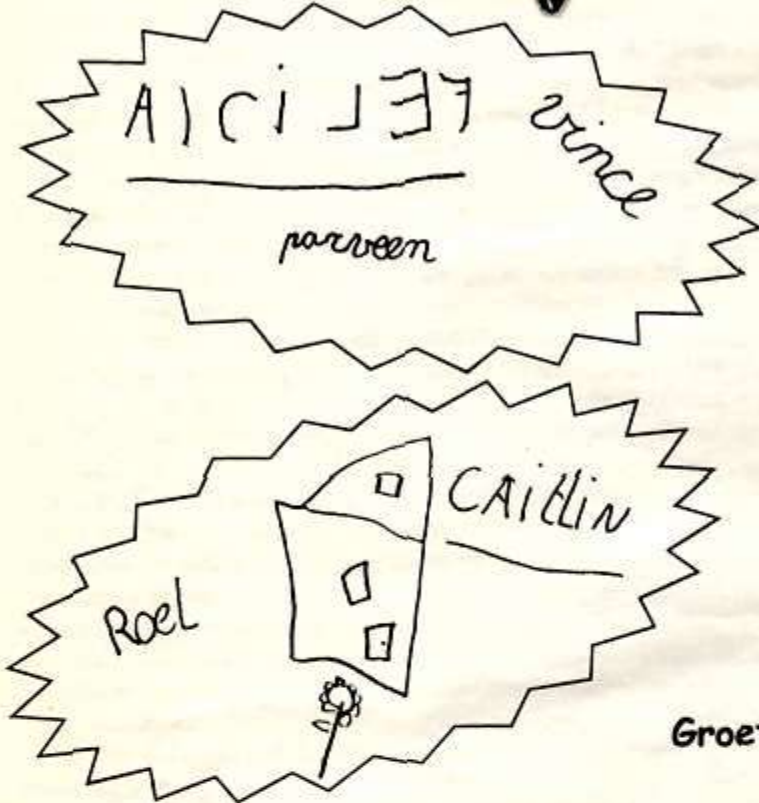 FELiCIA
vince
parveen
CAitlin
Roel
Groet